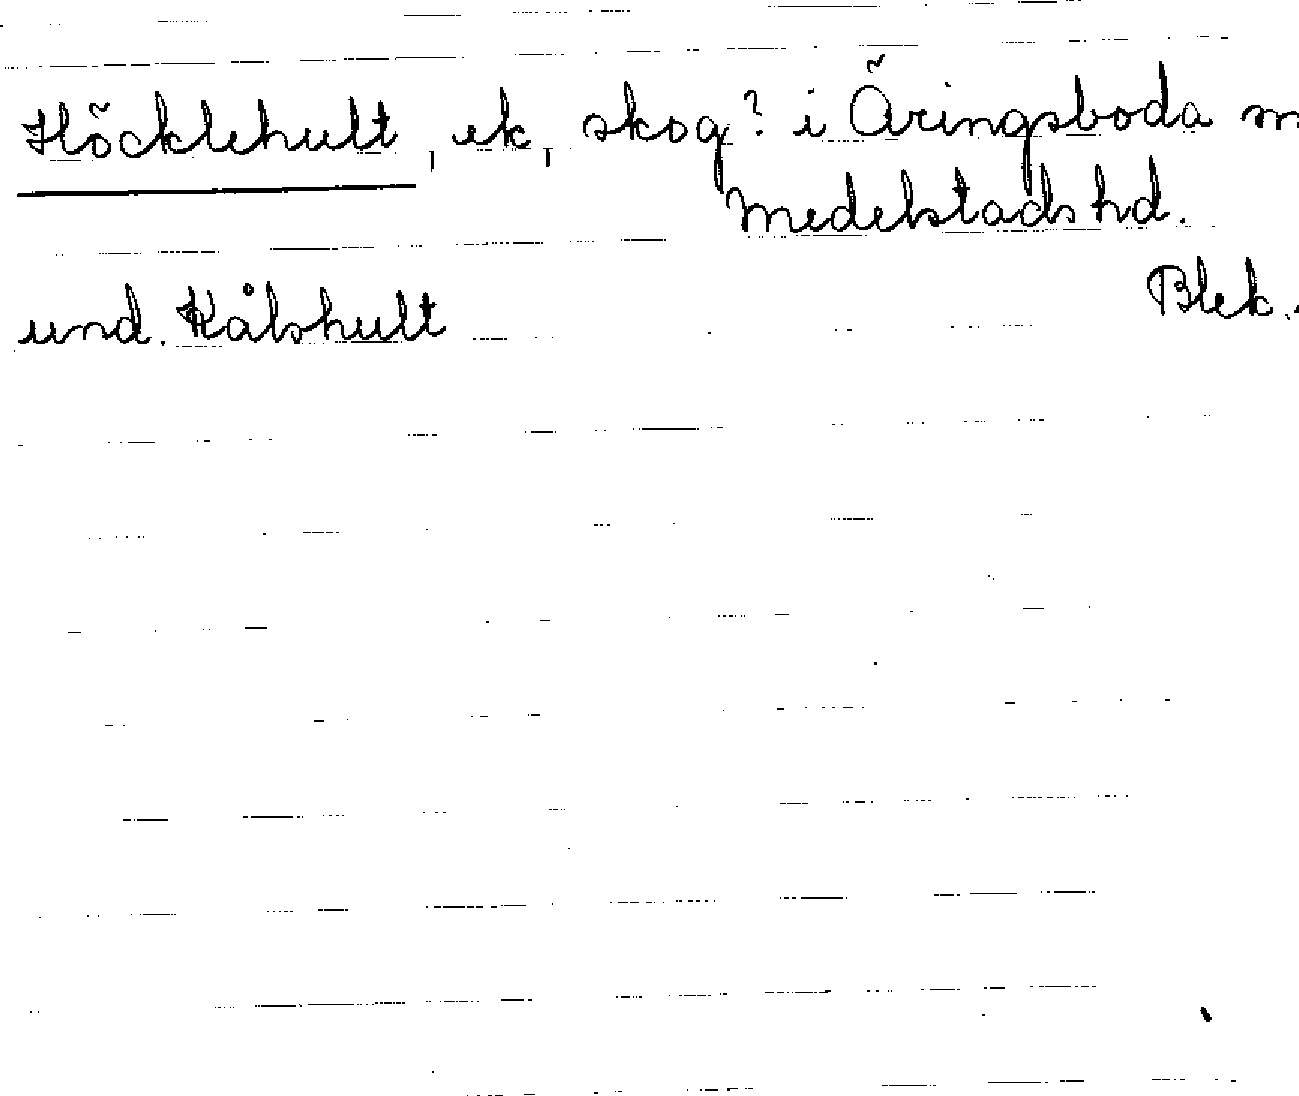 Höcklehult, ek, skog? i Äringsboda m
Medelstads hd.
Blek.
und. Kålshult